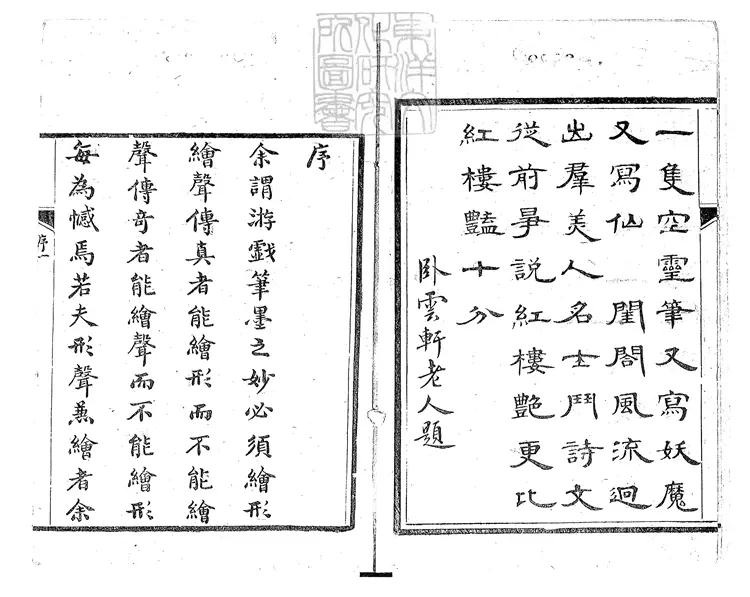 一隻空靈筆又寫妖魔
又寫仙 閨閣風流迥
出羣美人名士鬥詩文
從前爭説紅樓艷更比
紅樓豔十分
卧雲軒老人題
序
余謂游戲筆墨之妙必須繪形
繪聲傳真者能繪形而不能繪
聲傳奇者能繪聲而不能繪形
每為憾焉若夫形聲兼繪者余
序一
東洋文
化研究
所圖書